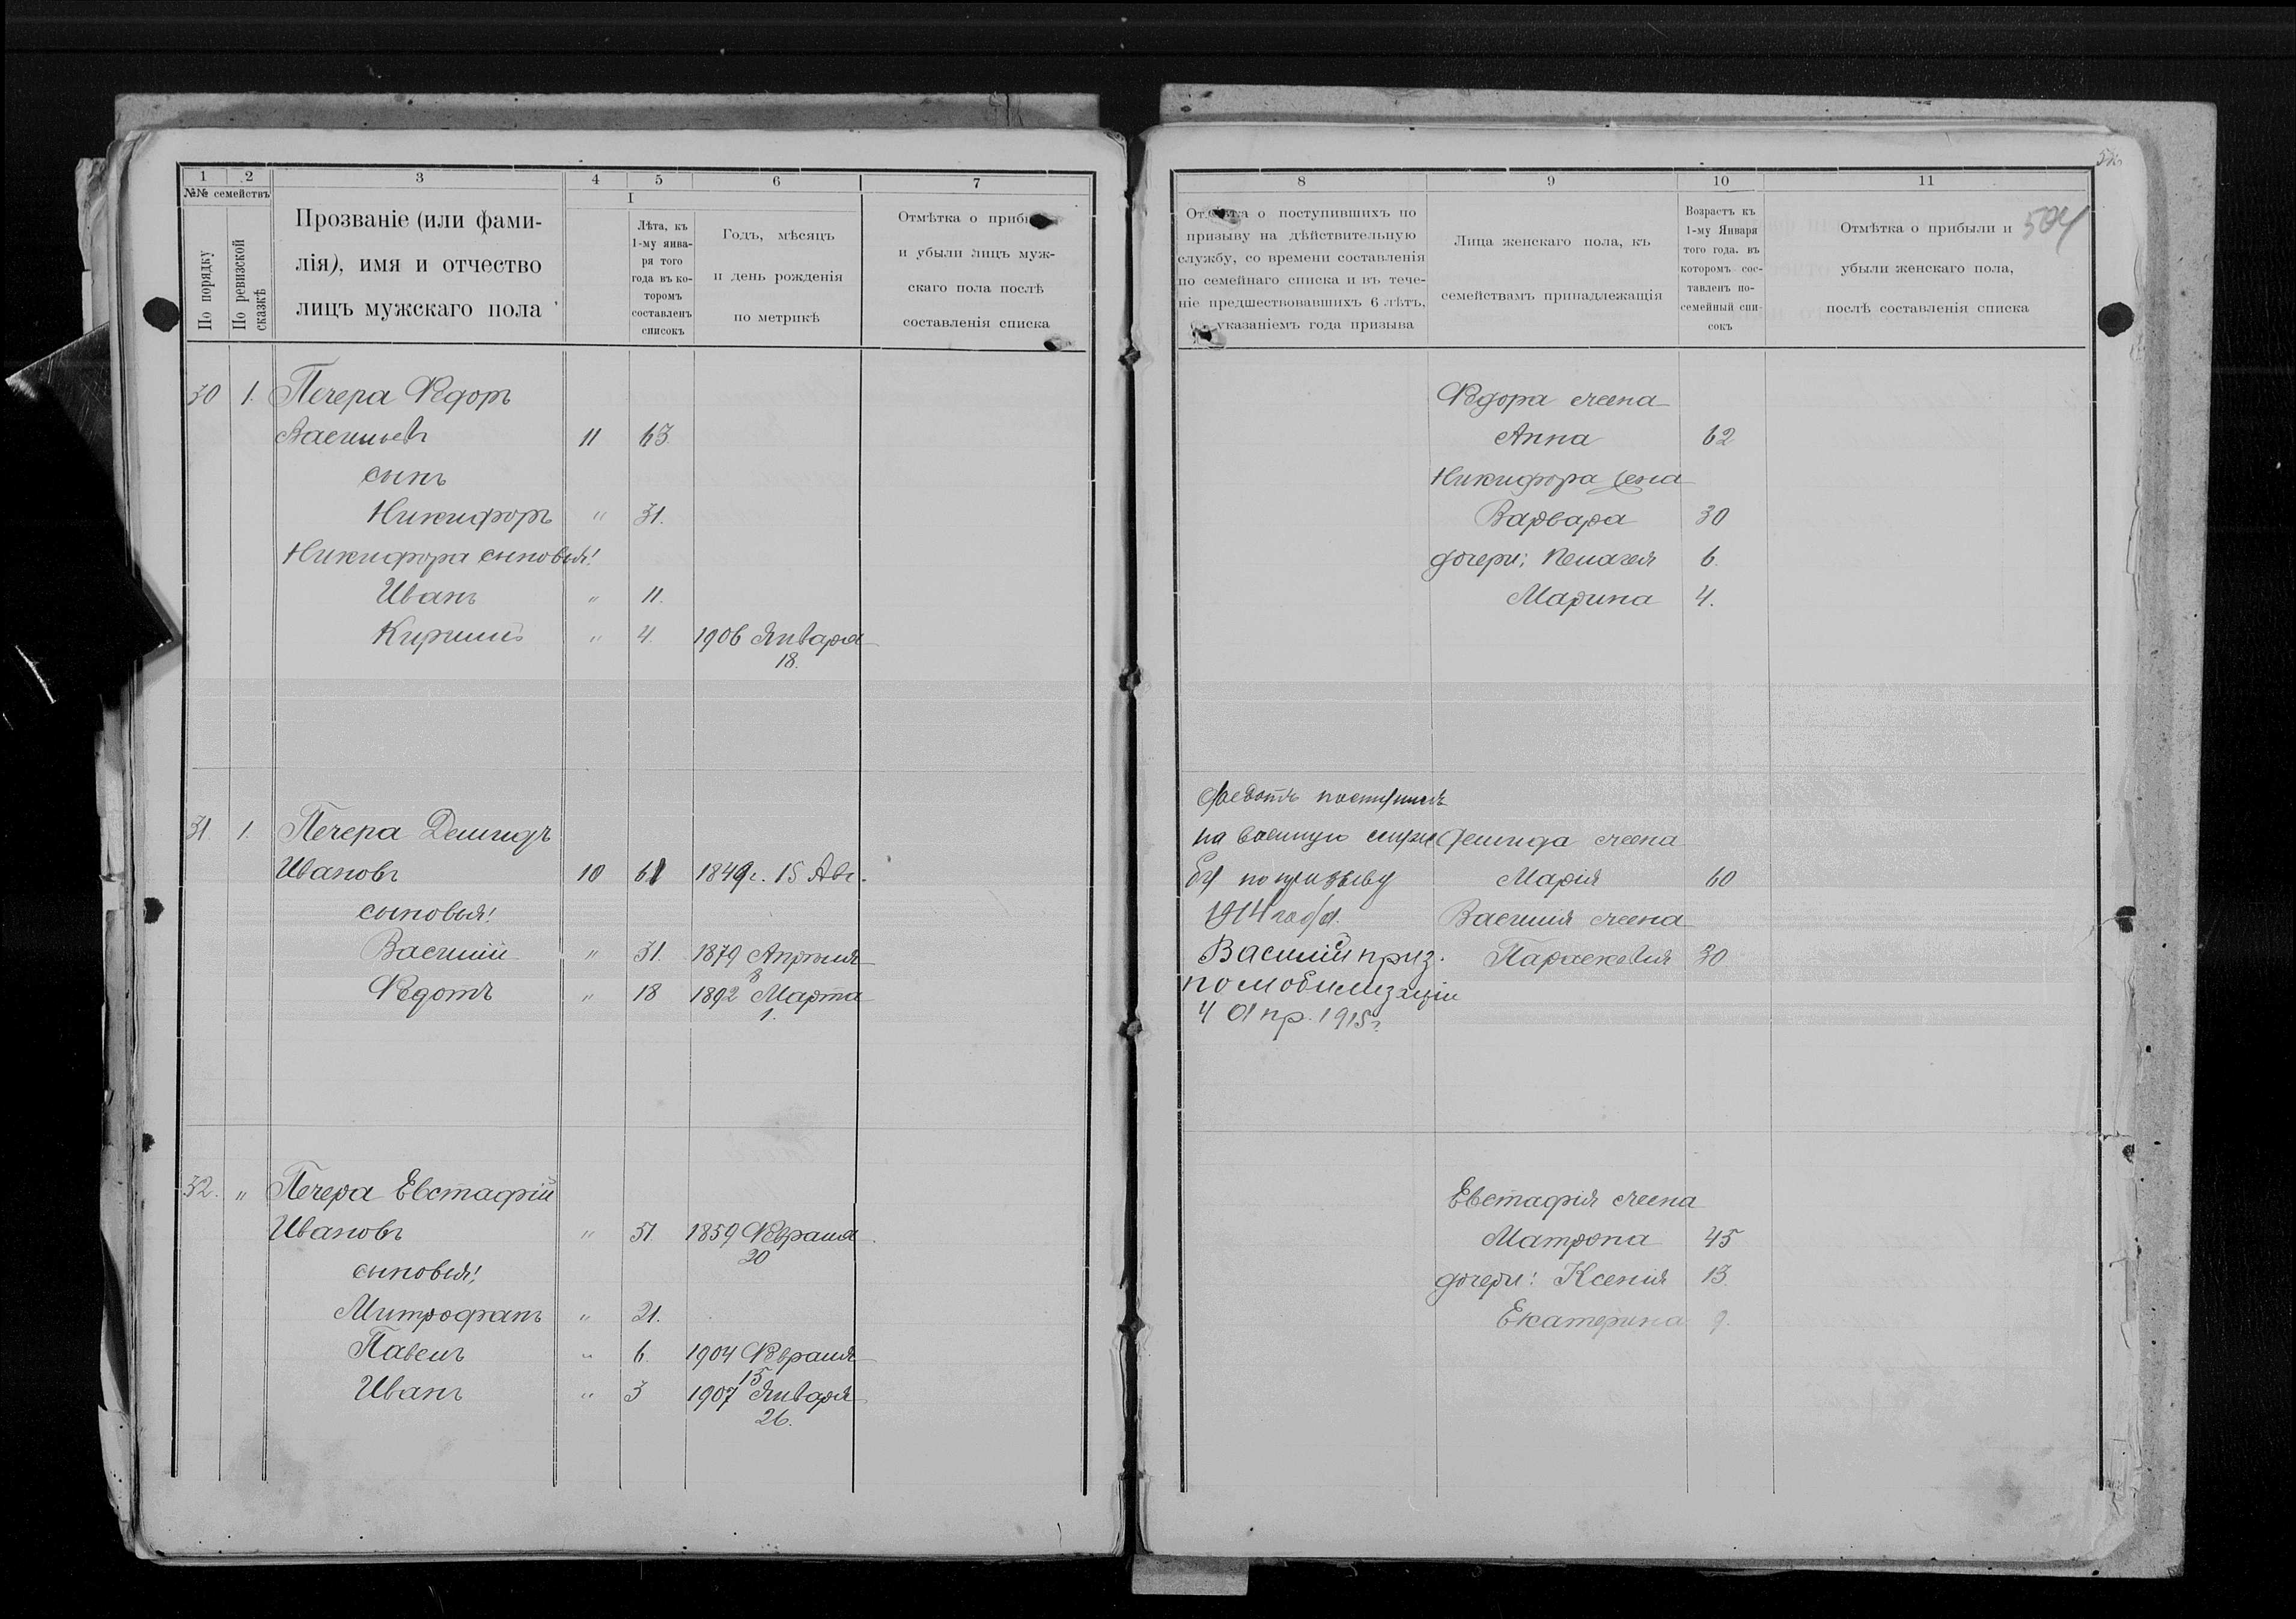 1 2 3 4 5 6 7
№№ семействъ
По порядку
По ревизской сказкѣ
Прозваніе (или фами-
лія), имя и отчество
лицъ мужскаго пола
I
Лѣта, къ
1-му янва-
ря того
года въ ко-
торомъ
составленъ
списокъ
Годъ, мѣсяцъ
и день рожденія
по метрикѣ
Отмѣтка о прибыли
и убыли лицъ муж-
скаго пола послѣ
составленія списка
30 1. Печера Ѳедоръ
Васильевъ 11 63
сынъ
Никифоръ " 31.
Никифора сыновья:
Иванъ " 11.
Кириллъ " 4. 1906 Января
18.
31. 1. Печера Демидъ
Ивановъ 10 61 1849г. 15 Авг.
сыновья:
Василій " 31. 1879 Апрѣля
8
Ѳедотъ " 18 1892 Марта
1.
32. " Печера Евстафій
Ивановъ " 51 1859 Февраля
20
сыновья:
Митрофанъ " 21.
Павелъ " 6. 1904 Февраля
15
Иванъ " 3 1907 Января
26.
8 9 10 11
504
Отмѣтка о поступившихъ по
призыву на дѣйствительную
службу, со времени составленія
по семейнаго списка и въ тече-
ніе предшествовавшихъ 6 лѣтъ,
съ указаніемъ года призыва
Лица женскаго пола, къ
семействамъ принадлежащія
Возрастъ къ
1-му Января
того года. въ
которомъ сос-
тавленъ по-
семейный спи-
сокъ
Отмѣтка о прибыли и
убыли женскаго пола,
послѣ составленія списка
Ѳедора жена
Анна 62
Никифора жена
Варвара 30
дочери: Пелагея 6.
Марина 4.
Федотъ поступилъ
на военную служ
бу по призыву
1914 года.
Василій приз.
по мобилизаціи
4 Апр. 1915г.
Демида жена
Марія 60
Василія жена
Параскевія 30
Евстафія жена
Матрона 45
дочери: Ксенія 13.
Екатерина 9.